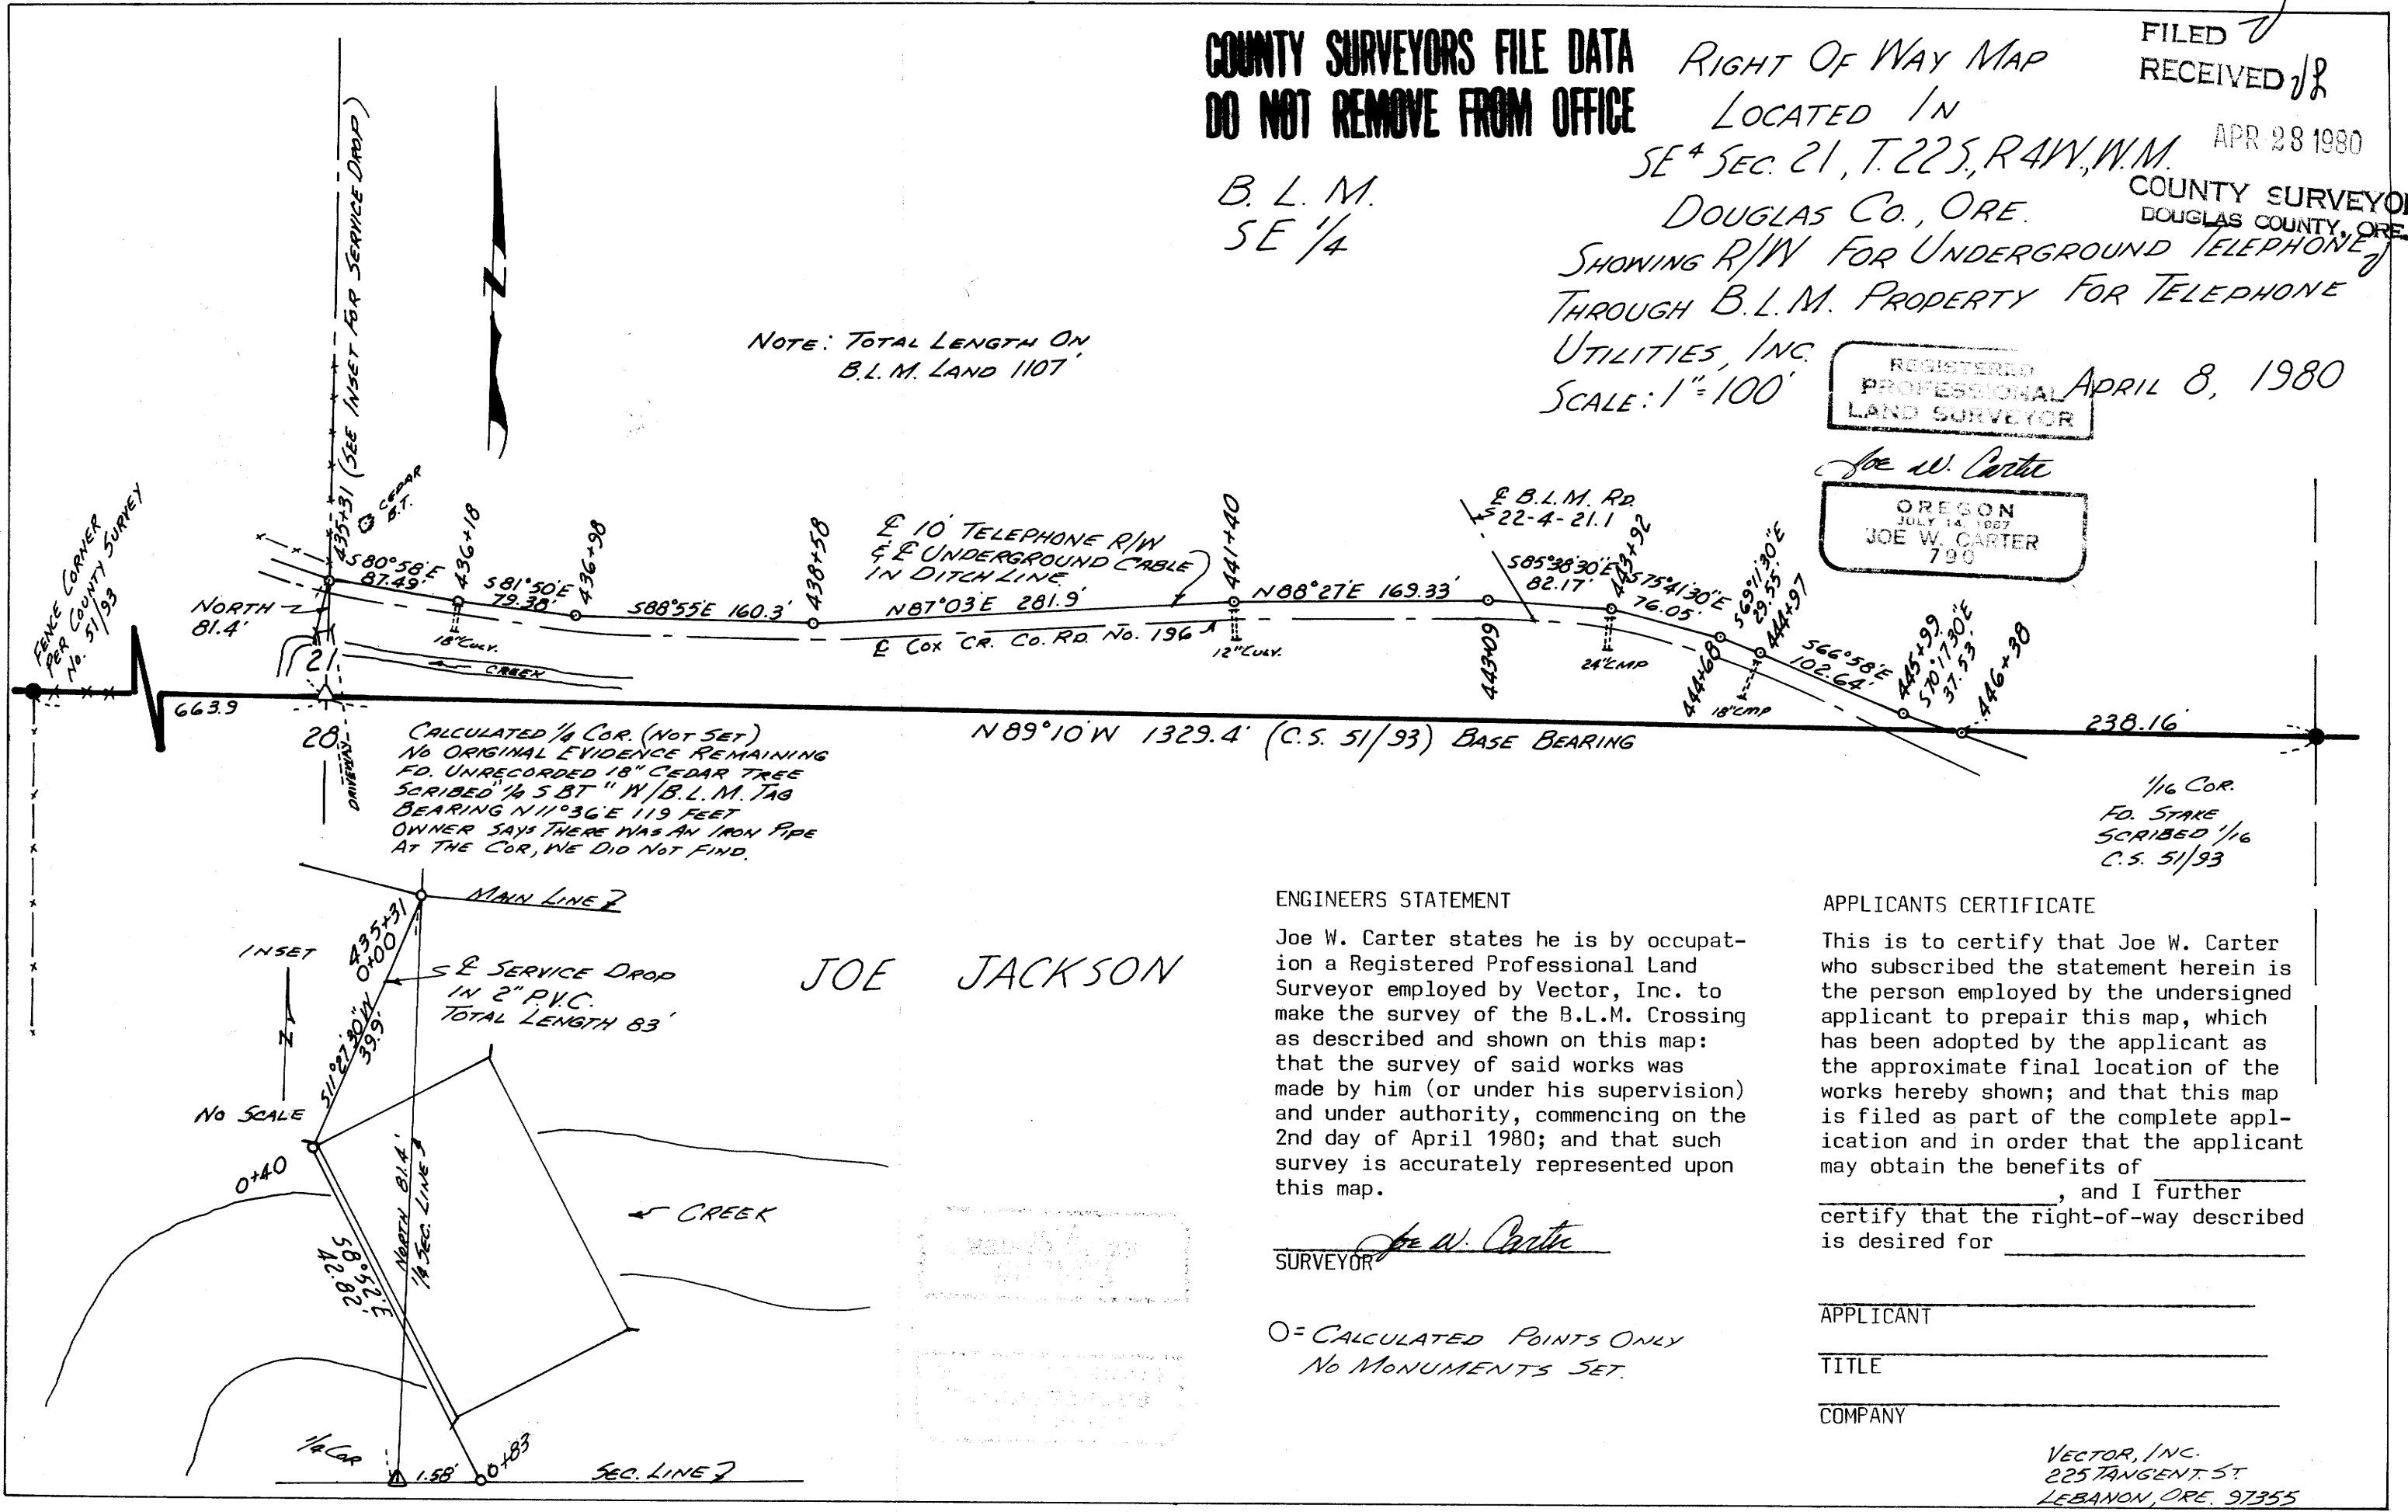 COUNTY SURVEYORS FILE DATA
DO NOT REMOVE FROM OFFICE
B. L. M.
SE 1/4
RIGHT OF WAY MAP
LOCATED IN
SE⁴ SEC. 21, T.22S., R4W., W.M.
DOUGLAS CO., ORE.
SHOWING R/W FOR UNDERGROUND TELEPHONE
THROUGH B.L.M. PROPERTY FOR TELEPHONE
UTILITIES, INC.
SCALE: 1"=100'
APRIL 8, 1980
FILED
RECEIVED
APR 28 1980
COUNTY SURVEYOR
DOUGLAS COUNTY, ORE.
REGISTERED
PROFESSIONAL
LAND SURVEYOR
Joe W. Carter
OREGON
JULY 14, 1967
JOE W. CARTER
790
NOTE: TOTAL LENGTH ON
B.L.M. LAND 1107'
435+31 (SEE INSET FOR SERVICE DROP)
CEDAR
B.T.
FENCE CORNER
PER COUNTY SURVEY
No. 51/93
NORTH
81.4'
S80°58'E
87.49'
436+18
S81°50'E
79.38'
436+98
S88°55'E 160.3'
438+58
℄ 10' TELEPHONE R/W
& ℄ UNDERGROUND CABLE
IN DITCH LINE
N87°03'E 281.9'
441+40
N88°27'E 169.33'
℄ B.L.M. RD.
22-4-21.1
443+09
S85°38'30"E
82.17'
443+92
S75°41'30"E
76.05'
444+68
S69°11'30"E
29.55'
444+97
S66°58'E
102.64'
445+99
S70°17'30"E
37.53'
446+38
18" CULV.
℄ COX CR. CO. RD. No. 196
12" CULV.
24" CMP
18" CMP
CREEK
21
28
DRIVEWAY
663.9
N89°10'W 1329.4' (C.S. 51/93) BASE BEARING
238.16'
CALCULATED 1/4 COR. (NOT SET)
NO ORIGINAL EVIDENCE REMAINING
FD. UNRECORDED 18" CEDAR TREE
SCRIBED "1/4 S BT" W/B.L.M. TAG
BEARING N11°36'E 119 FEET
OWNER SAYS THERE WAS AN IRON PIPE
AT THE COR, WE DID NOT FIND.
1/16 COR.
FD. STAKE
SCRIBED 1/16
C.S. 51/93
MAIN LINE
INSET
NO SCALE
435+31
0+00
℄ SERVICE DROP
IN 2" P.V.C.
TOTAL LENGTH 83'
S11°27'30"W
39.9'
0+40
S8°52'E
42.82'
NORTH 81.4'
1/4 SEC. LINE
CREEK
1/4 COR
1.58'
0+83
SEC. LINE
JOE JACKSON
ENGINEERS STATEMENT
Joe W. Carter states he is by occupat-
ion a Registered Professional Land
Surveyor employed by Vector, Inc. to
make the survey of the B.L.M. Crossing
as described and shown on this map:
that the survey of said works was
made by him (or under his supervision)
and under authority, commencing on the
2nd day of April 1980; and that such
survey is accurately represented upon
this map.
Joe W. Carter
SURVEYOR
O = CALCULATED POINTS ONLY
NO MONUMENTS SET.
APPLICANTS CERTIFICATE
This is to certify that Joe W. Carter
who subscribed the statement herein is
the person employed by the undersigned
applicant to prepair this map, which
has been adopted by the applicant as
the approximate final location of the
works hereby shown; and that this map
is filed as part of the complete appl-
ication and in order that the applicant
may obtain the benefits of
, and I further
certify that the right-of-way described
is desired for
APPLICANT
TITLE
COMPANY
VECTOR, INC.
225 TANGENT ST.
LEBANON, ORE. 97355